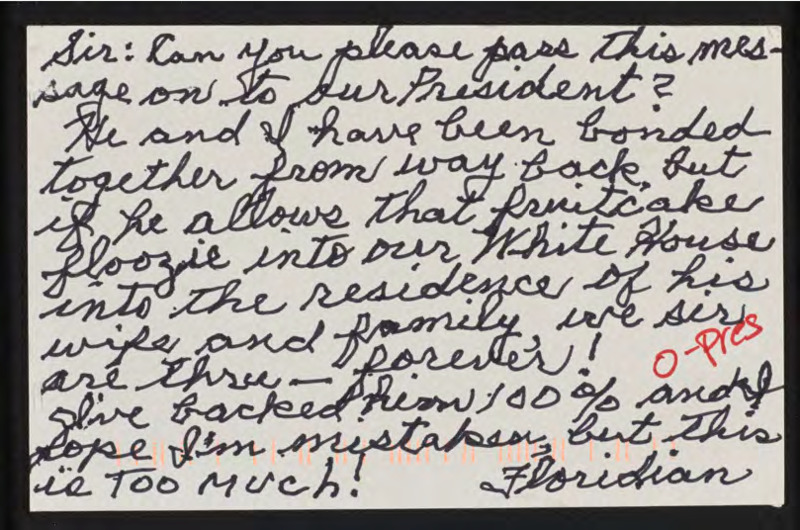 Sir: Can you please pass this mes-
sage on to our President?
He and I have been bonded
together from way back, but
if he allows that fruitcake
floozie into our White House
into the residence of his
wife and family, we sir,
are thru — forever!
O-Pres
I've backed him 100% and I
hope I'm mistaken, but this
is TOO MUCH! Floridian